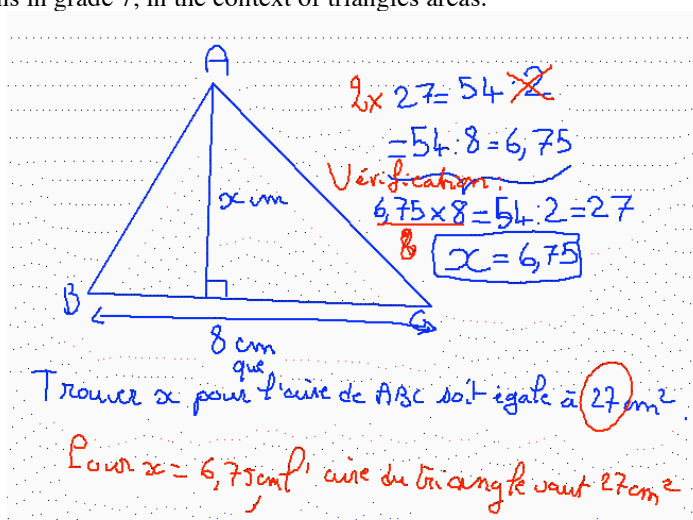 ns in grade 7, in the context of triangles areas.
A
2x 27 = 54 : 2
= 54 : 8 = 6,75
Vérification :
x cm
6,75 x 8 = 54 : 2 = 27
x = 6,75
B
C
8 cm
que
Trouver x pour l'aire de ABC soit égale à 27 cm².
Pour x = 6,75 cm l'aire du triangle vaut 27 cm²